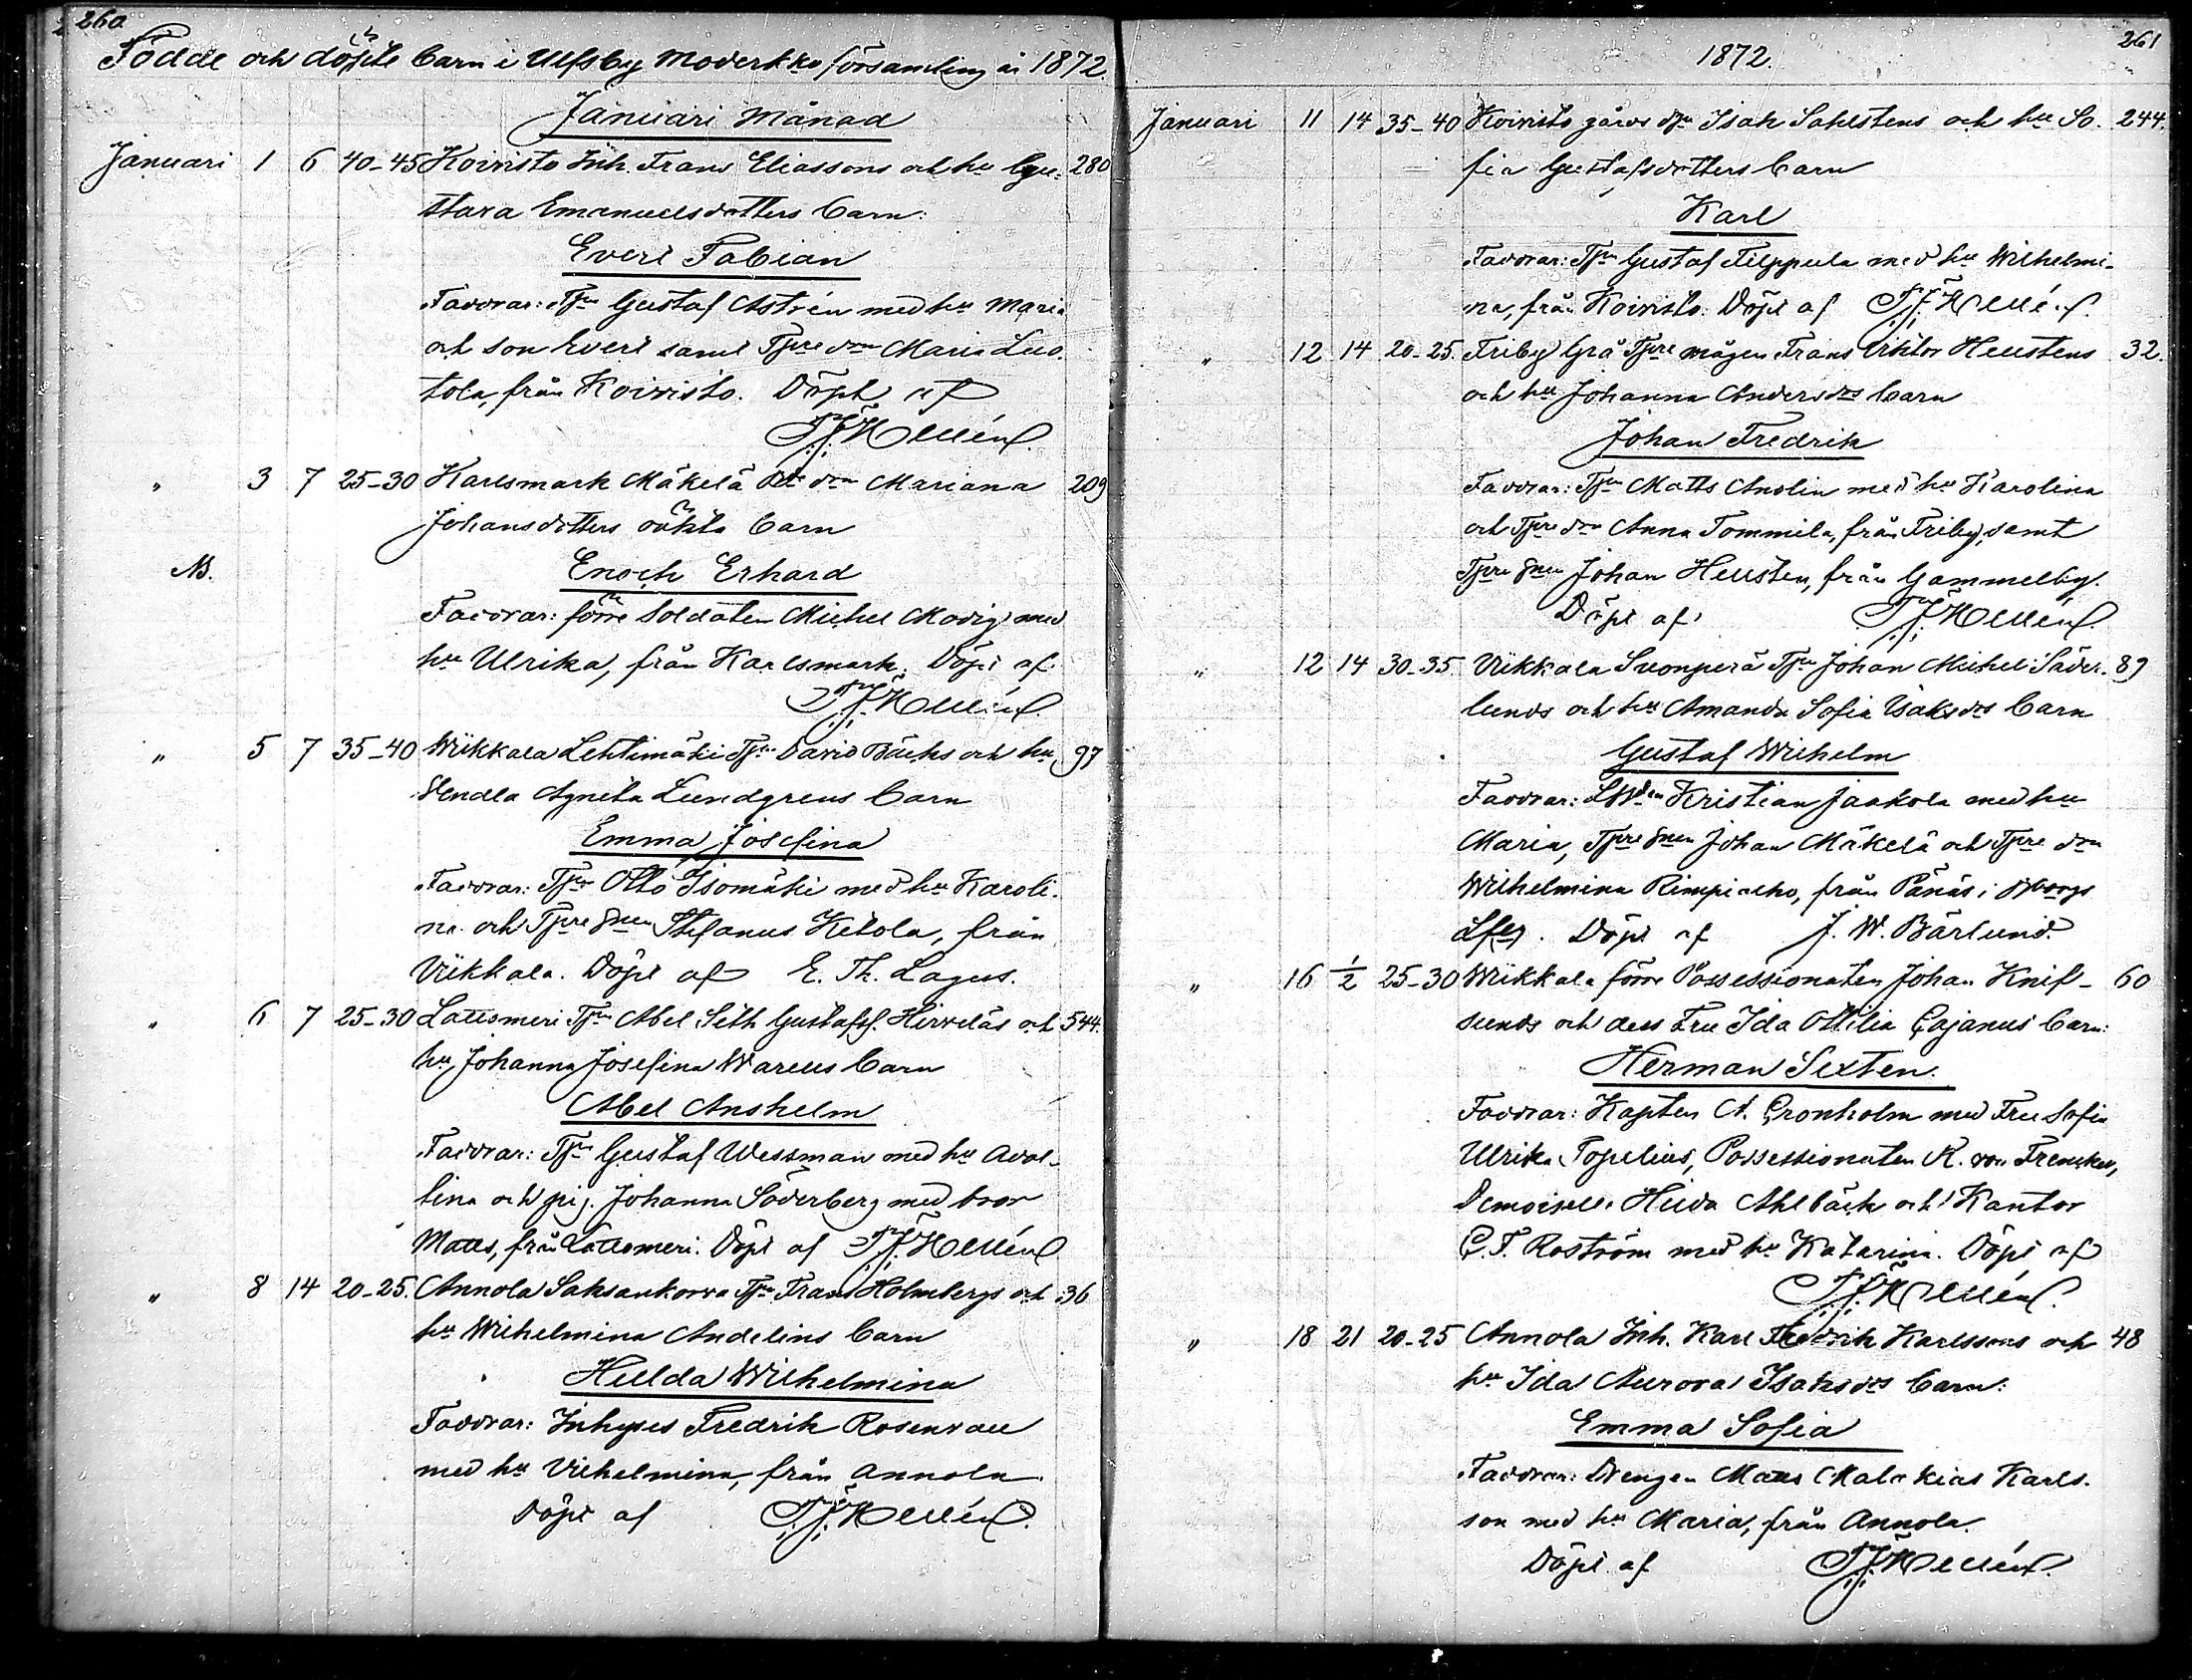 260
Födde och döpte barn i Ulfsby Moderkko församling år 1872.
Januari Månad
Januari 1 6 40-45 Koivisto Inh. Frans Eliassons och hu Gu- 280
stava Emanuelsdotters barn:
Evert Fabian
Faddrar: Tjn Gustaf Astrén med hu Maria
och son Evert samt Tjre don Maria Luo-
tola, från Koivisto. Döpt af
" 3 7 25-30 Karlsmark Mäkelä don Mariana 209
Johansdotters oäkta barn
NB. Enoch Erhard
Faddrar: förre Soldaten Michel Modig med
hu Ulrika, från Karlsmark. Döpt af
" 5 7 35-40 Wiikkala Lehtimäki Tjn David Bäcks och hu 97
Hendla Agneta Lundgrens barn
Emma Josefina
Faddrar: Tjn Otto Isomäki med hu Karoli-
na och Tjre Snen Stefanus Ketola, från
Viikkala. Döpt af E. Th. Lagus.
" 6 7 25-30 Lattomeri Tjn Abel Seth Gustafss. Hirveläs och 544.
hu Johanna Josefina Warens barn
Abel Anshelm
Faddrar: Tjn Gustaf Wessman med hu Adol-
fina och pig. Johanna Söderberg med bror
Matts, från Lattomeri. Döpt af T. J. Hellén
" 8 14 20-25. Annola Saksankorva Tjn Frans Holmbergs och 36
hu Wilhelmina Andelins barn
Hulda Wilhelmina
Faddrar: Inhyses Fredrik Rosenvall
med hu Vilhelmina, från Annola.
Döpt af T. J. Hellén.
1872. 261
Januari 11 14 35-40 Koivisto gårds Isak Sahlstens och hu So- 244.
fia Gustafsdotters barn
Karl
Faddrar: Tjn Gustaf Filppula med hu Wilhelmi-
na, från Koivisto. Döpt af T. J. Hellén.
" 12 14 20-25. Friby Grå Tjre mågen Frans Viktor Hellstens 32.
och hu Johanna Andersdrs barn
Johan Fredrik
Faddrar: Tjn Matts Anolin med hu Karolina
och Tjre don Anna Tommila, från Friby, samt
Tjre Snen Johan Hellsten, från Gammelby.
Döpt af T. J. Hellén.
" 12 14 30-35. Viikkala Suonperä Tjn Johan Michel Söder- 89
lunds och hu Amanda Sofia Isaksdrs barn
Gustaf Wilhelm
Faddrar: Kristian Jaakola med hu
Maria, Tjre Snen Johan Mäkelä och Tjre don
Wilhelmina Rimpiaho, från Pänäs i
Döpt af J. W. Bärlund.
" 16 1/2 25-30 Wiikkala förre Possessionaten Johan Knif- 60
sunds och dess Fru Ida Ottilia Cajanus barn:
Herman Sixten.
Faddrar: Kapten A. Cronholm med Fru Sofia
Ulrika Topelius, Possessionaten K. von Frenckell,
Demoiselle Hilda Ahlbäck och Kantor
C. F. Roström med hu Katarina. Döpt af
T. J. Hellén.
" 18 21 20-25 Annola Inh. Karl Fredrik Karlssons och 48
hu Ida Aurora Isaksdrs barn:
Emma Sofia
Faddrar: Drengen Matts Malakias Karls-
son med hu Maria, från Annola.
Döpt af T. J. Hellén.